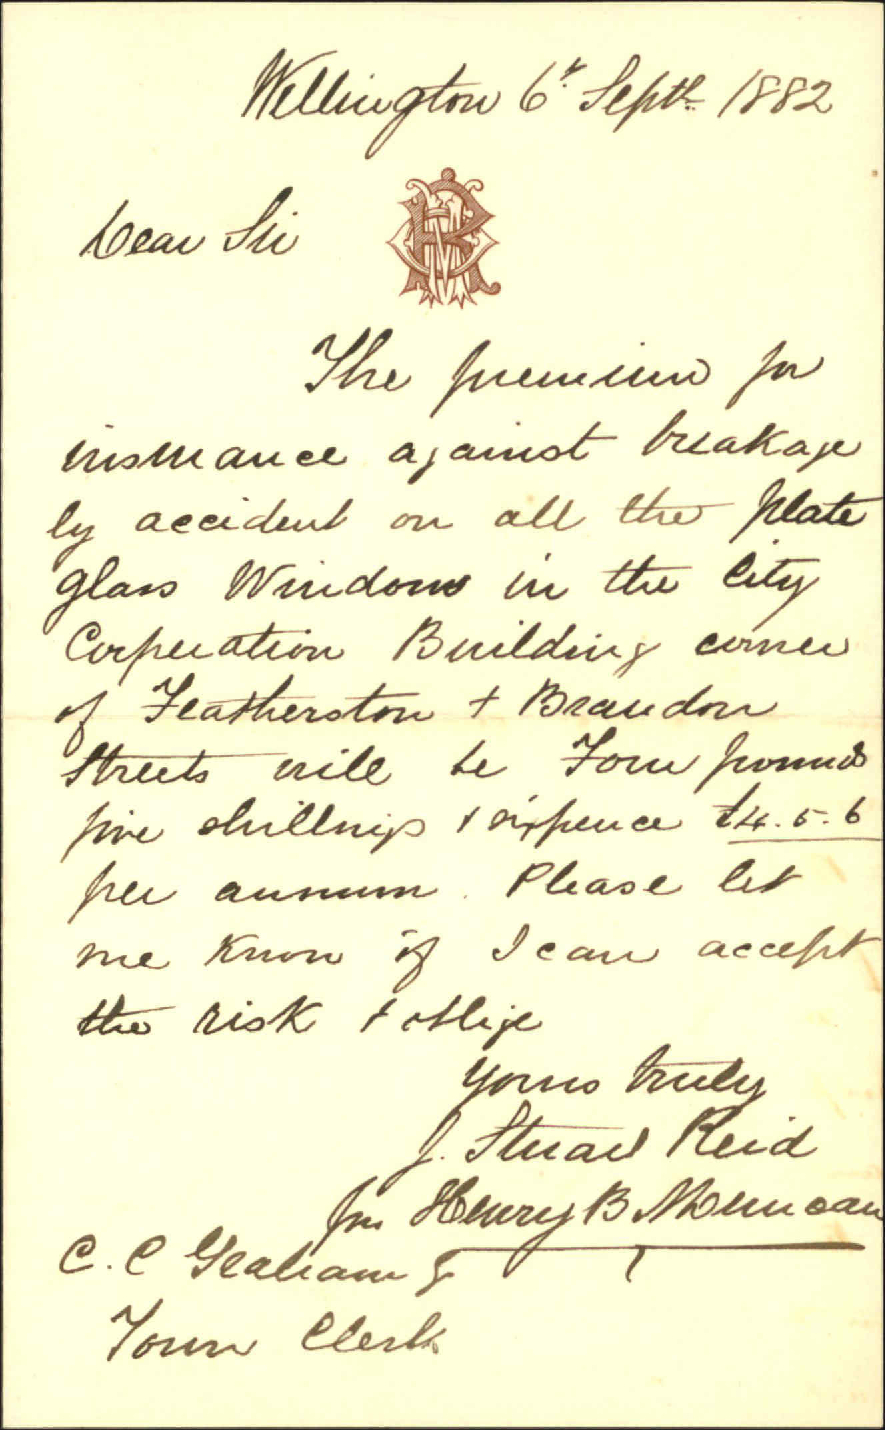 Wellington 6th Septr. 1882
Dear Sir
The premium for
insurance against breakage
by accident on all the plate
glass Windows in the City
Corporation Building corner
of Featherston & Brandon
Streets will be Four pounds
five shillings & sixpence £4.5.6
per annum. Please let
me know if I can accept
the risk & oblige
Yours truly
J. Stuart Reid
for Henry B
C. C Graham
Town Clerk